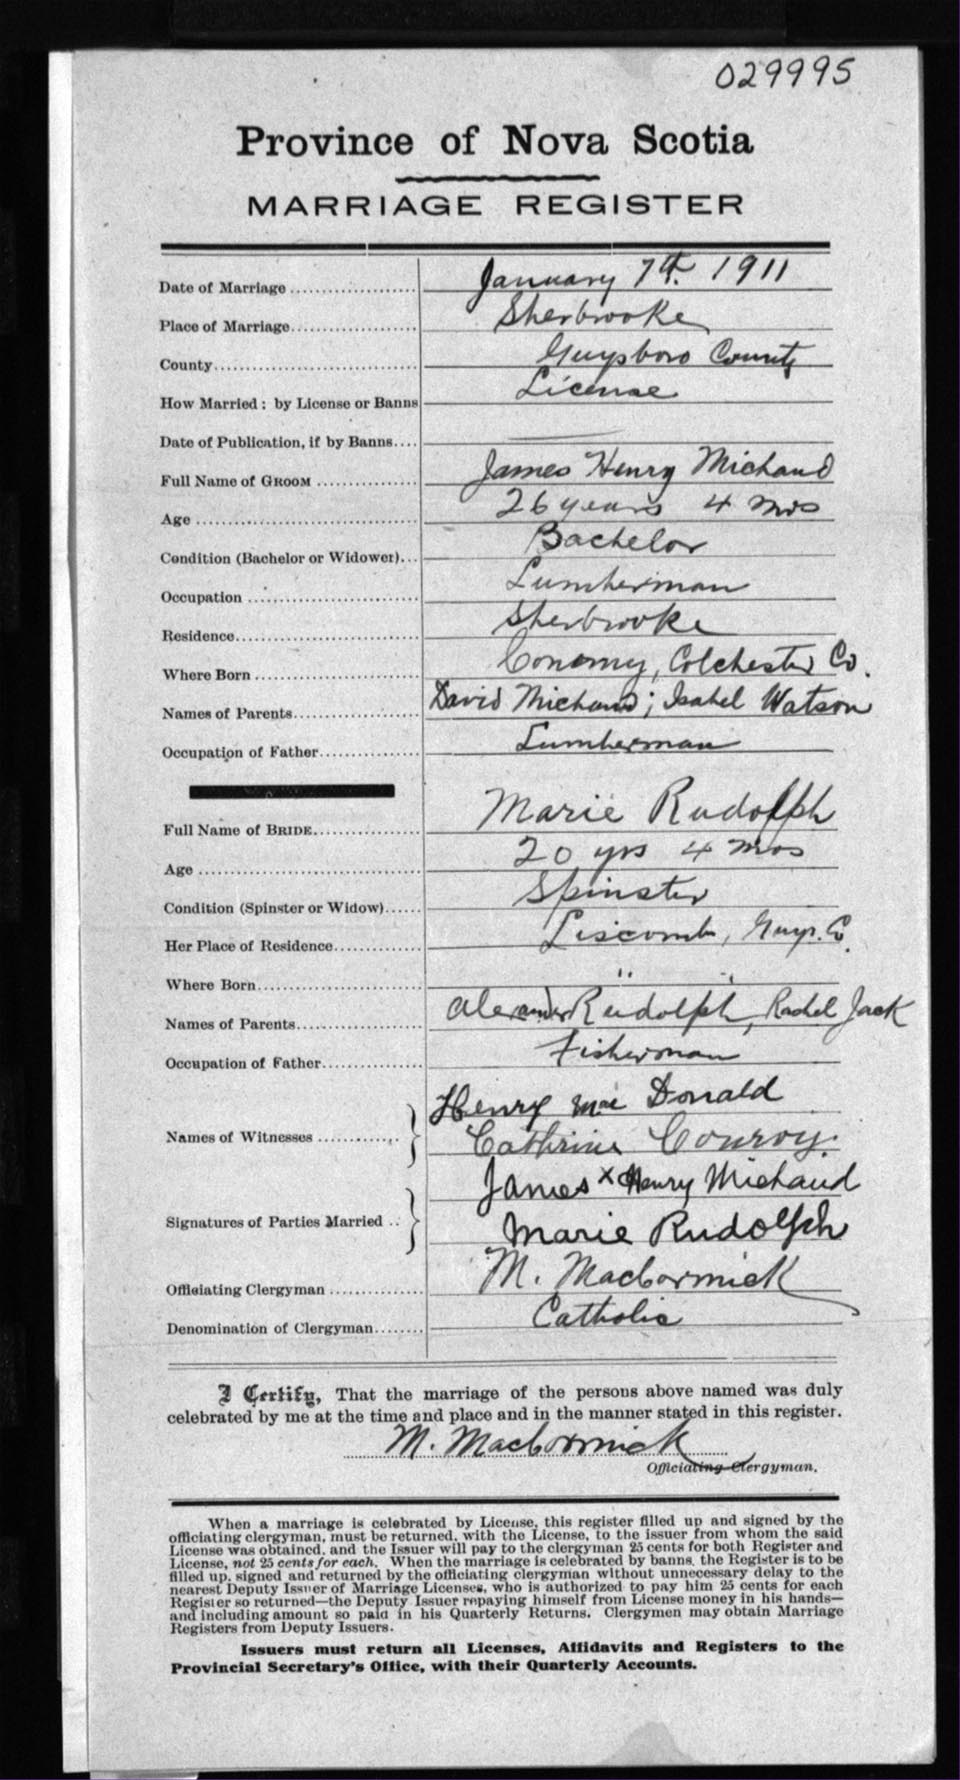 029995
Province of Nova Scotia
MARRIAGE REGISTER
Date of Marriage .................... January 7th. 1911
Place of Marriage.................... Sherbrooke
County.................... Guysboro County
How Married: by License or Banns License
Date of Publication, if by Banns.... —
Full Name of GROOM .................... James Henry Michaud
Age .................... 26 years 4 mos
Condition (Bachelor or Widower)... Bachelor
Occupation .................... Lumberman
Residence.................... Sherbrooke
Where Born .................... Conomy, Colchester Co.
Names of Parents.................... David Michaud; Isabel Watson
Occupation of Father.................... Lumberman
Full Name of BRIDE.................... Marie Rudolph
Age .................... 20 yrs 4 mos
Condition (Spinster or Widow)...... Spinster
Her Place of Residence............. Liscomb, Guys. Co.
Where Born.................... " "
Names of Parents.................... Alexander Rudolph, Rachel Jack
Occupation of Father.................... Fisherman
Names of Witnesses ............. } Henry Mac Donald
Cathrine Conroy.
Signatures of Parties Married .. } James x Henry Michaud
Marie Rudolph
Officiating Clergyman .................... M. MacCormick
Denomination of Clergyman........ Catholic
I Certify, That the marriage of the persons above named was duly
celebrated by me at the time and place and in the manner stated in this register.
M. MacCormick
Officiating Clergyman.
When a marriage is celebrated by License, this register filled up and signed by the
officiating clergyman, must be returned, with the License, to the issuer from whom the said
License was obtained, and the Issuer will pay to the clergyman 25 cents for both Register and
License, not 25 cents for each. When the marriage is celebrated by banns, the Register is to be
filled up, signed and returned by the officiating clergyman without unnecessary delay to the
nearest Deputy Issuer of Marriage Licenses, who is authorized to pay him 25 cents for each
Register so returned—the Deputy Issuer repaying himself from License money in his hands—
and including amount so paid in his Quarterly Returns. Clergymen may obtain Marriage
Registers from Deputy Issuers.
Issuers must return all Licenses, Affidavits and Registers to the
Provincial Secretary's Office, with their Quarterly Accounts.